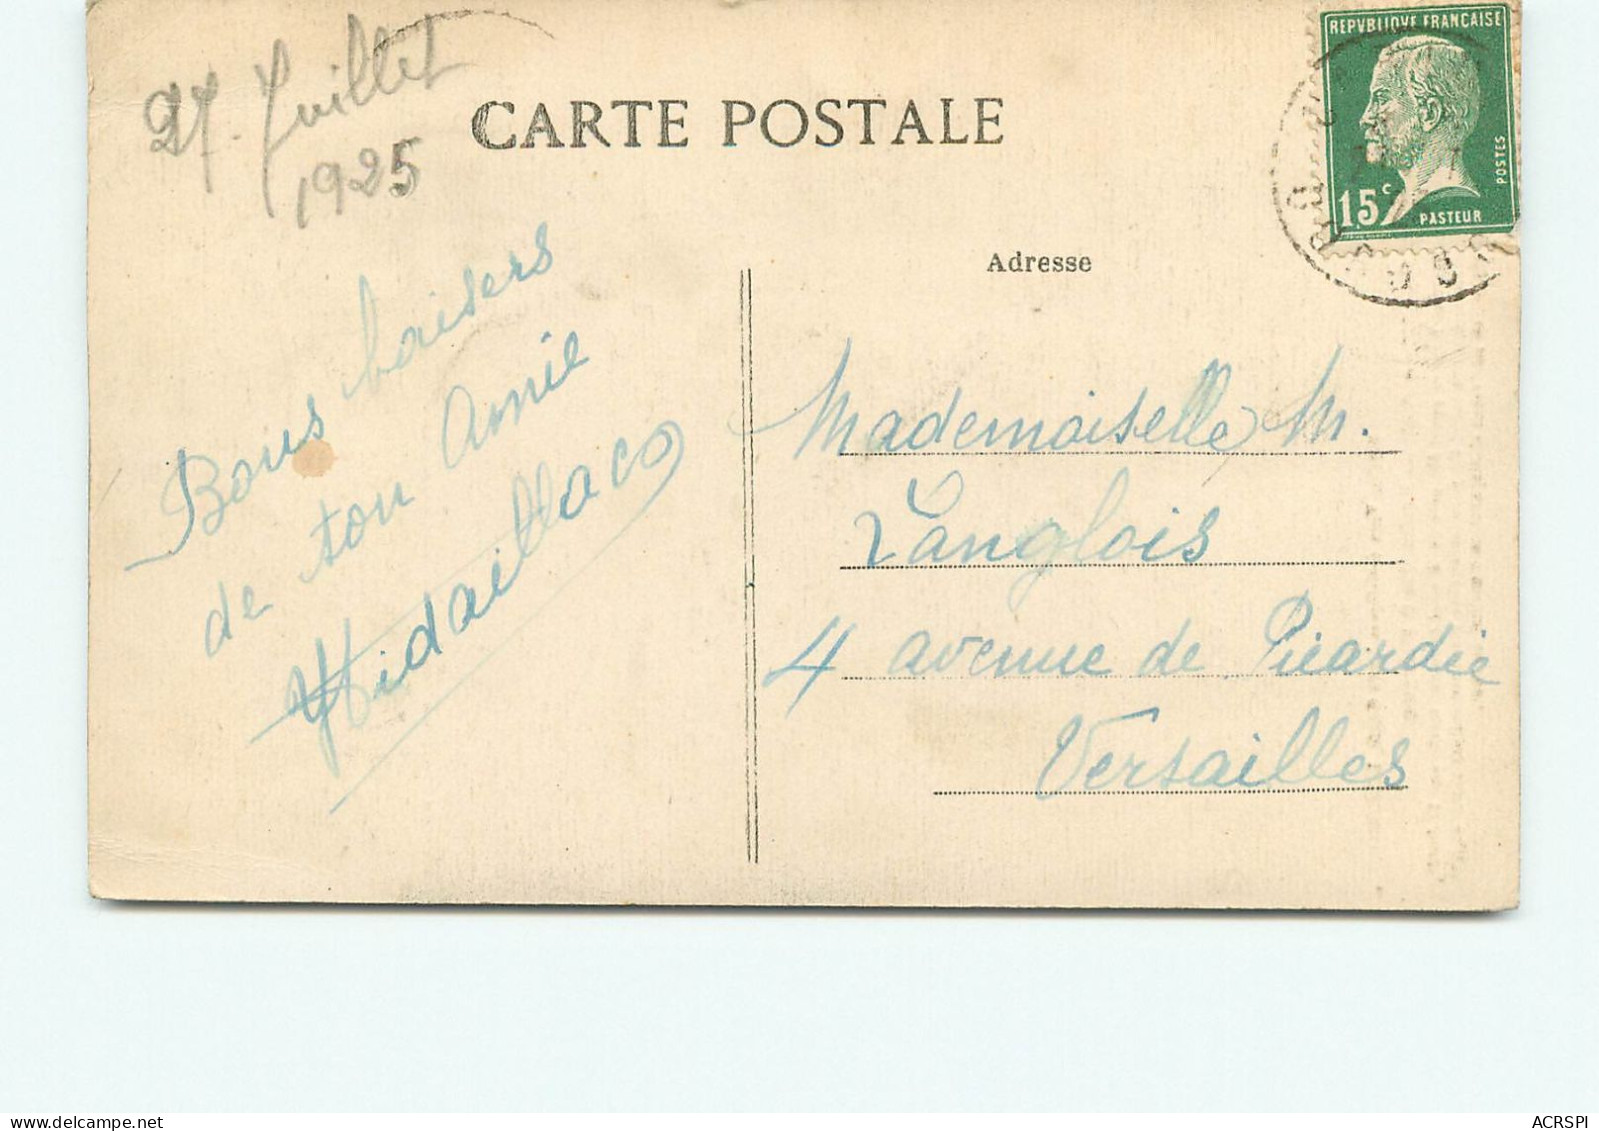 27 Juillet
1925
CARTE POSTALE
REPVBLIQVE FRANÇAISE
POSTES
15c
PASTEUR
Adresse
Bons baisers
de ton Amie
Mademoiselle M.
Langlois
4 avenue de Picardie
Versailles
ACRSPI